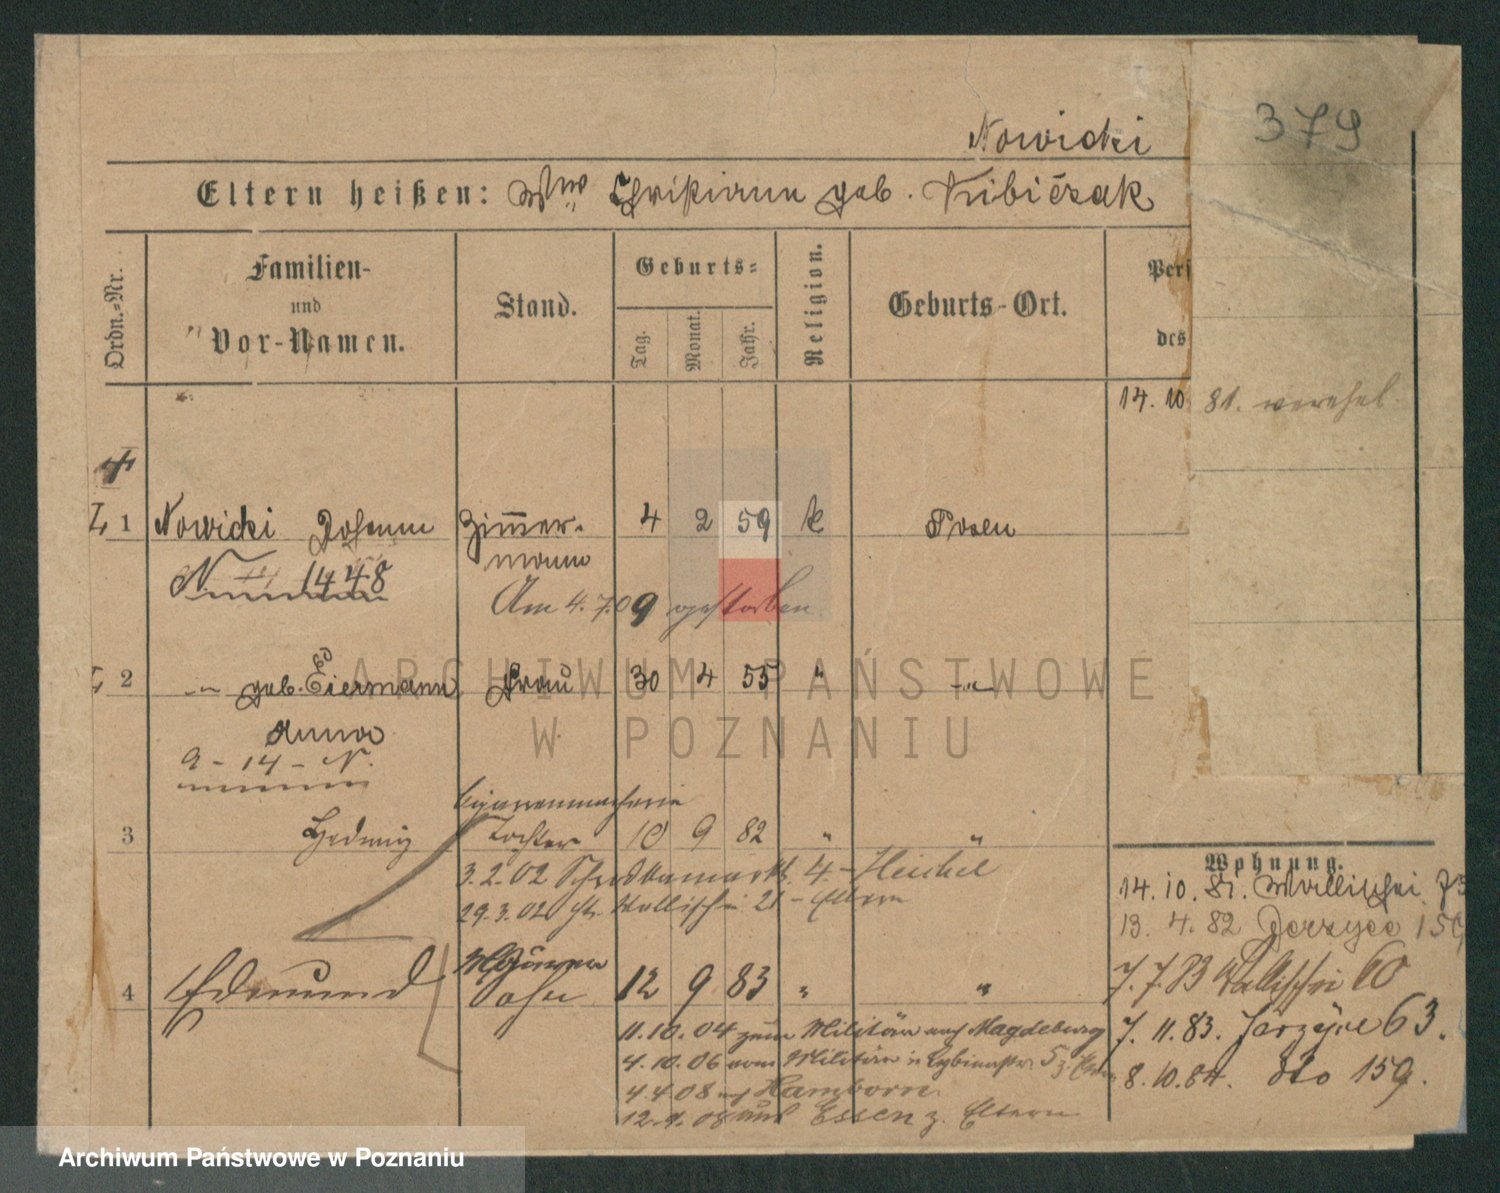 379
Nowicki
Eltern heißen: Wwe Christiane geb. Kubiczak
Ordn.-Nr.
Familien-
und
Vor-Namen.
Stand.
Geburts-
Tag.
Monat.
Jahr.
Religion.
Geburts-Ort.
Pers
des
14. 10 81. verehel.
1 Nowicki Johann Zimmer- 4 2 59 k Posen
mann
N 1448
Am 4.7.09 gestorben.
2 -"- geb. Eiermann Frau 30 4 55 " -"-
Anna
9-14-N.
Cigarrenmacherin
3 Hedwig Tochter 10 9 82 " "
3.2.02 4 - Heichel
29.3.02 Wallischei 21 - Eltern
4 Edmund Sohn 12 9 83 " "
11.10.04 zum Militär nach Magdeburg
4.10.06 vom Militär
4.4.08 nach Hamborn
12.9.08 aus Essen z. Eltern
Wohnung.
14.10.81. Wallischei 73
13. 4. 82 Jerzyce 159
7.7.83 Wallischei 60
7. 11. 83. Jerzyce 63.
8.10.84. dto 159.
ARCHIWUM PAŃSTWOWE
W POZNANIU
Archiwum Państwowe w Poznaniu